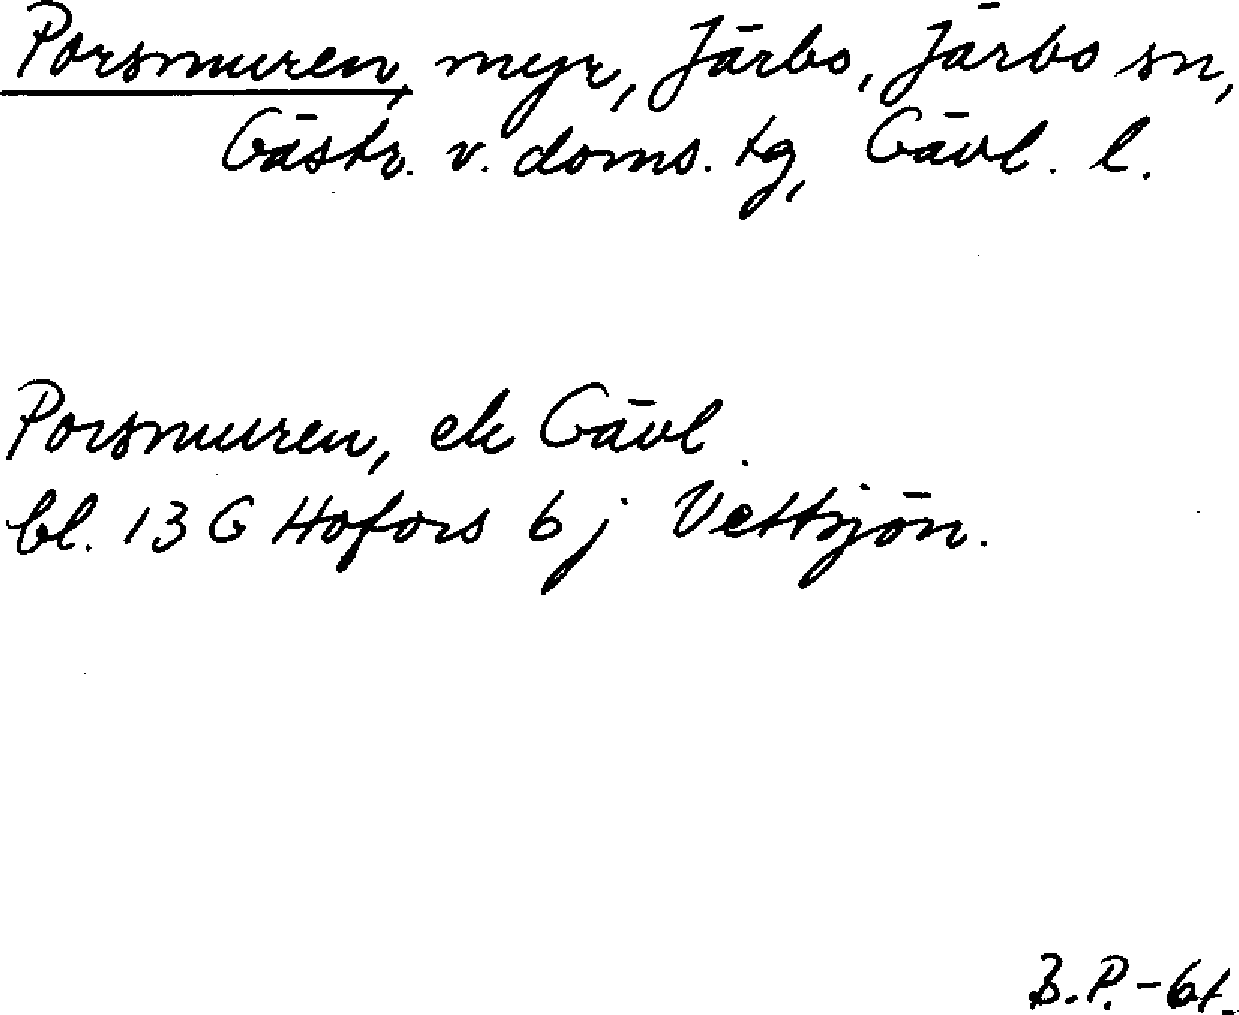 Porsmuren, myr, Järbo, Järbo sn,
Gästr. v. doms. tg, Gävl. l.
Porsmuren, ek Gävl.
bl. 13 G Hofors 6 j Vettsjön.
B.P. -61.